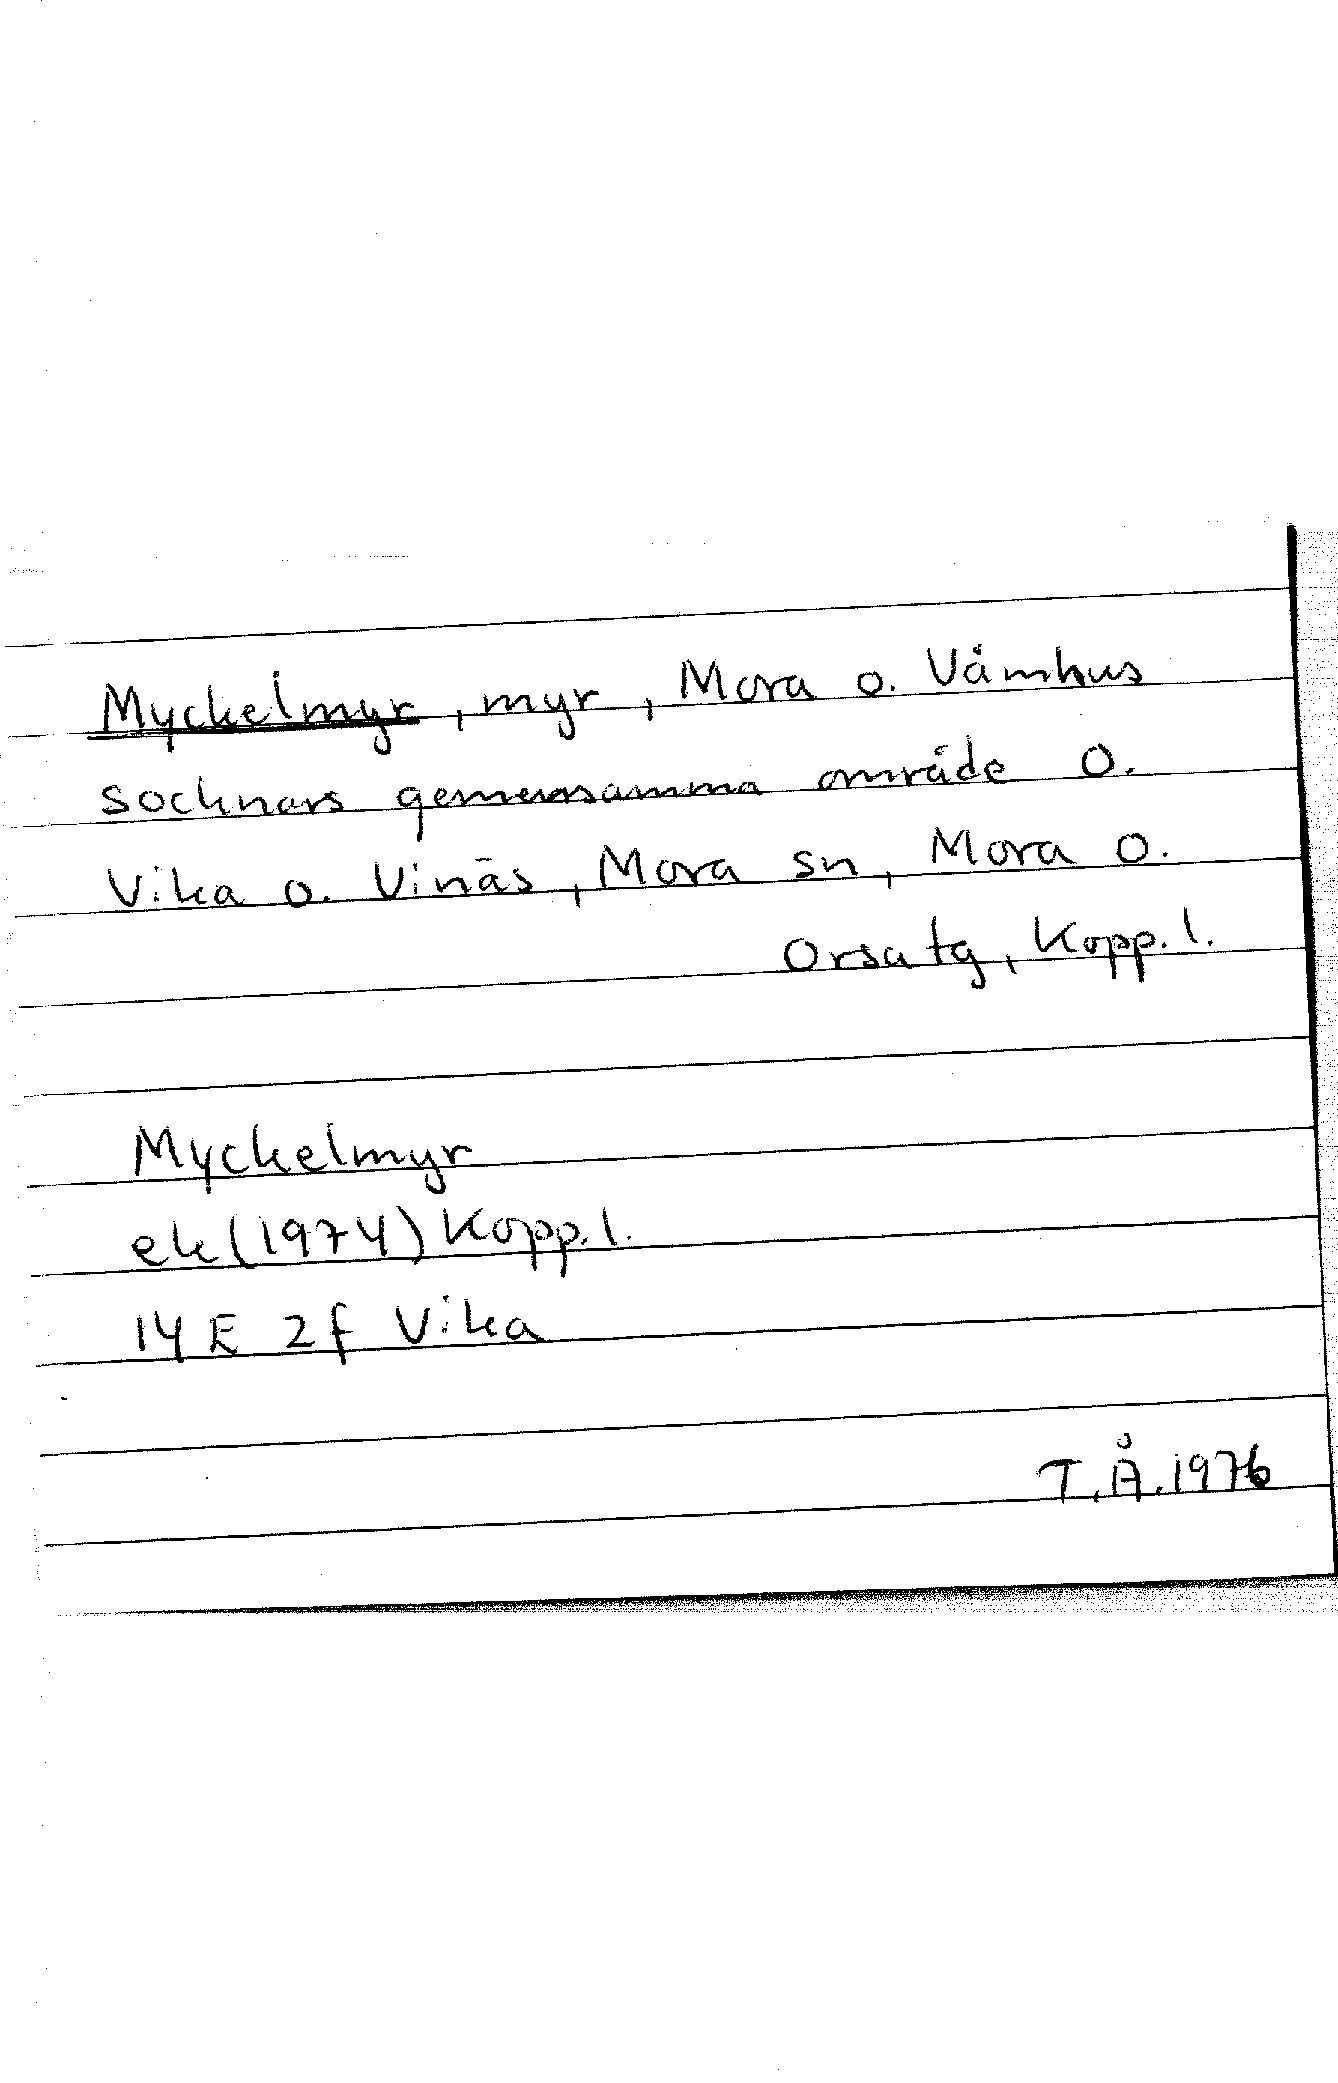 Myckelmyr, myr, Mora o. Våmhus
socknars gemensamma område o.
Vika o. Vinäs, Mora sn, Mora o.
Orsa tg, Kopp. l.
Myckelmyr
ek (1974) Kopp. l.
14 E 2f Vika
T.Å.1976